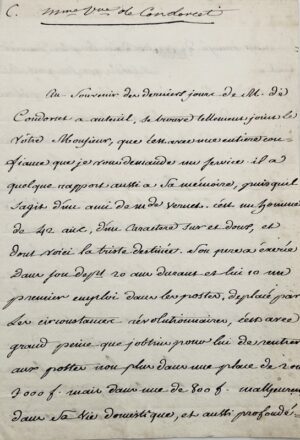 C. Mme Vve de Condorcet
Au Souvenir des derniers jours de M. de
Condorcet a auteuil, se trouve tellement joint le
Vôtre Monsieur, que c'est avec une entiere con-
fiance que je vous demande un service il a
quelque rapport aussi a Sa mémoire, puisqu'il
S'agit d'un ami de mde vernet. c'est un homme
de 42 ans, d'un Caractere sur et doux, et
dont voici la triste destinée. Son pere a exercé
dans son dept 20 ans durant et lui 10 un
premier emploi dans les postes, deplacé par
Les circonstances révolutionnaires, c'est avec
grand peine que j'obtins pour lui de rentrer
aux postes non plus dans une place de 2 ou
3000 f. mais dans une de 800 f. malheureux
dans sa vie domestique, et aussi profondé-